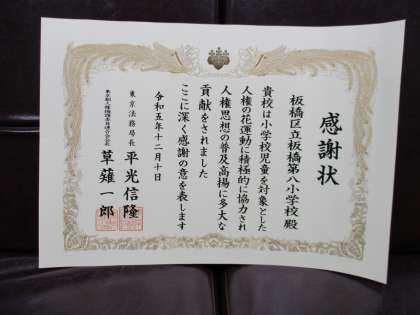 感謝状
板橋区立板橋第八小学校 殿
貴校は小学校児童を対象とした
人権の花運動に積極的に協力され
人権思想の普及高揚に多大な
貢献をされました
ここに深く感謝の意を表します
令和五年十二月十日
東京法務局長 平光信隆
草薙一郎